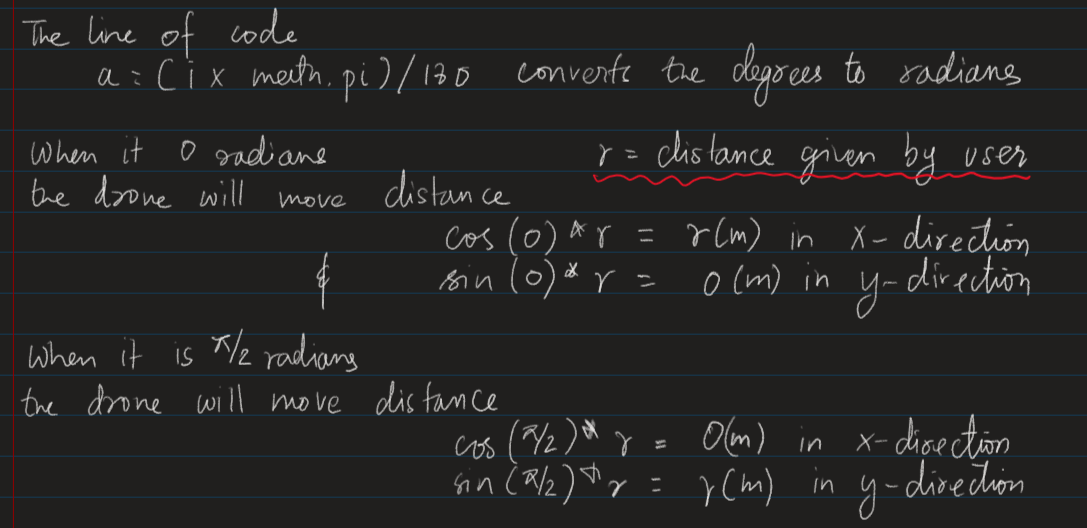 The line of code
a = (i x math.pi)/180 converts the degrees to radians
When it 0 radians r = distance given by user
the drone will move distance
cos (0) * r = r(m) in x-direction
& sin (0) * r = 0 (m) in y-direction
When it is π/2 radians
the drone will move distance
cos (π/2) * r = 0(m) in x-direction
sin (π/2) * r = r(m) in y-direction